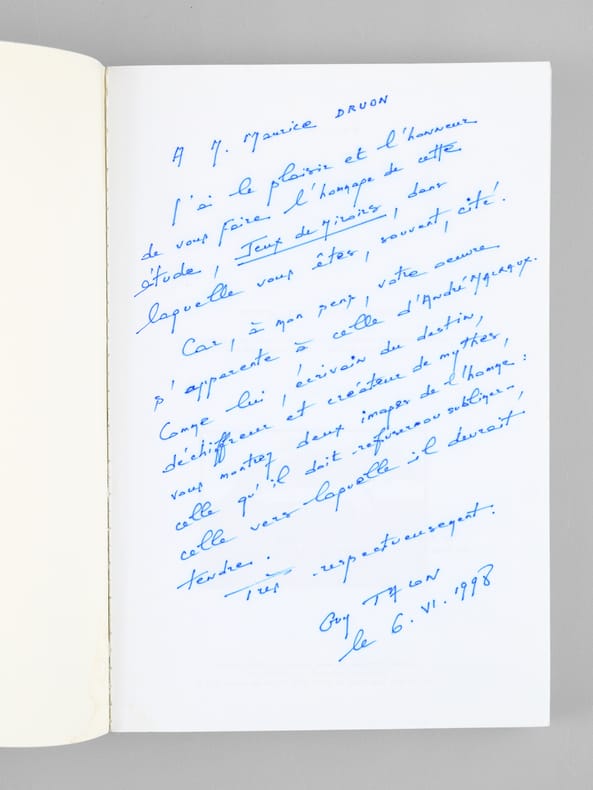 A M. Maurice DRUON
J'ai le plaisir et l'honneur
de vous faire l'hommage de cette
étude, Jeux de miroirs, dans
laquelle vous êtes, souvent, cité.
Car, à mon sens, votre oeuvre
s'apparente à celle d'André MALRAUX.
Comme lui, écrivain du destin,
déchiffreur et créateur de mythes,
vous montrez deux images de l'homme :
celle qu'il doit refuser ou sublimer,
celle vers laquelle il devrait
tendre.
Très respectueusement.
Guy
le 6. VI. 1998